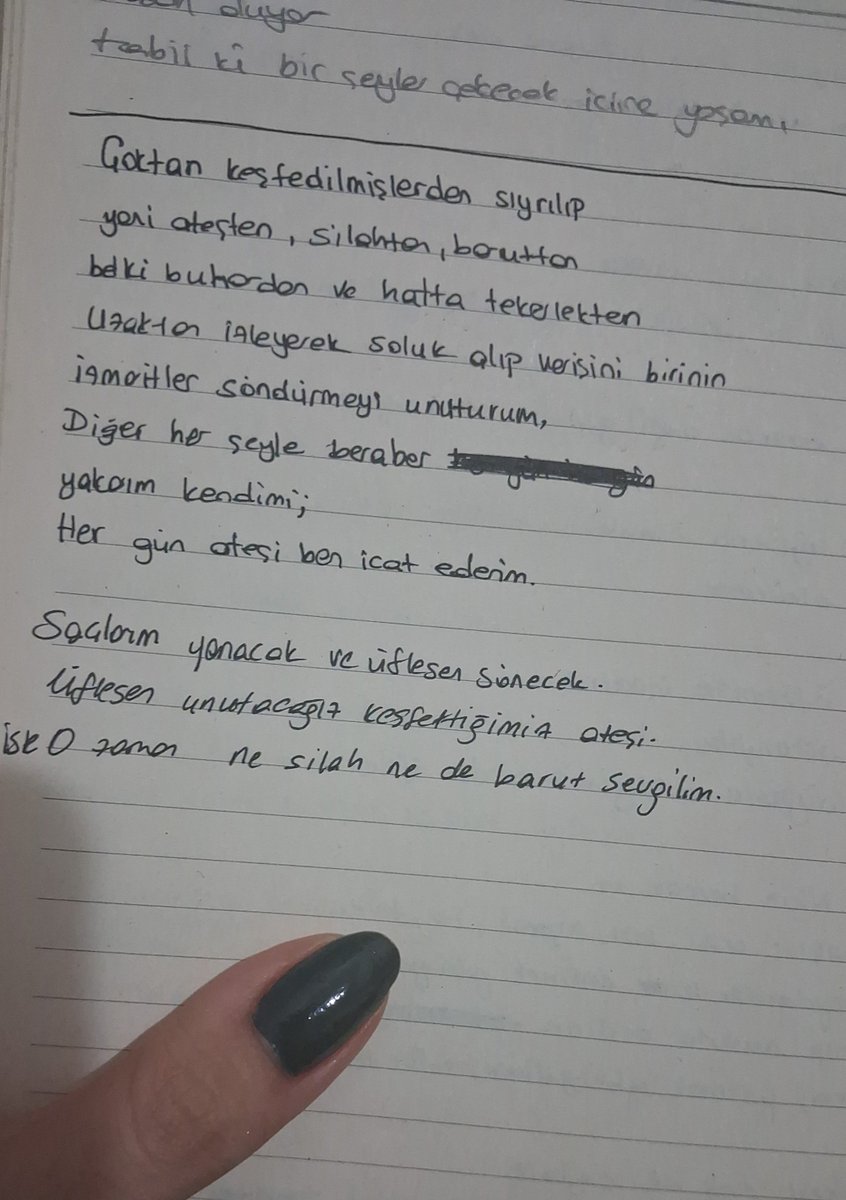 oluyor
tabii ki bir şeyler çekecek içine yaşam,
Çoktan keşfedilmişlerden sıyrılıp
yani ateşten, silahtan, baruttan
belki buhardan ve hatta tekerlekten
Uzaktan izleyerek soluk alıp verişini birinin
izmaritler söndürmeyi unuturum,
Diğer her şeyle beraber
yakarım kendimi;
Her gün ateşi ben icat ederim.
Saçlarım yanacak ve üflesen sönecek.
Üflesen unutacağız keşfettiğimiz ateşi.
işte O zaman ne silah ne de barut sevgilim.